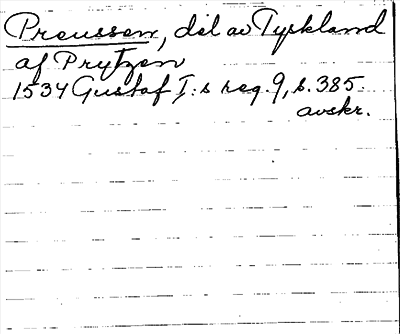 Preussen, del av Tyskland
af Prytzen
1534 Gustaf I:s reg. 9, s. 385.
avskr.